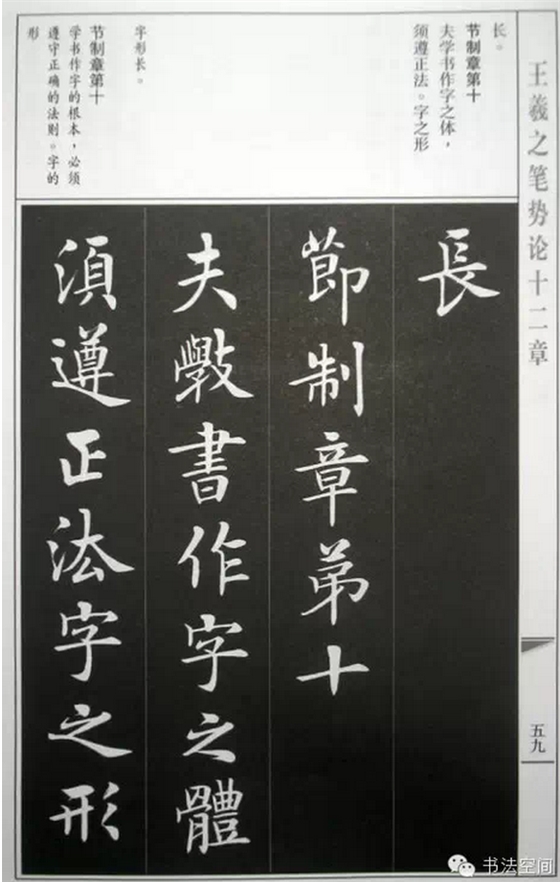 王羲之笔势论十二章
长。
节制章第十
夫学书作字之体，
须遵正法。字之形
字形长。
节制章第十
学书作字的根本，必须
遵守正确的法则。字的
形
長
節制章弟十
夫斆書作字之體
須遵正法字之形
五九
书法空间